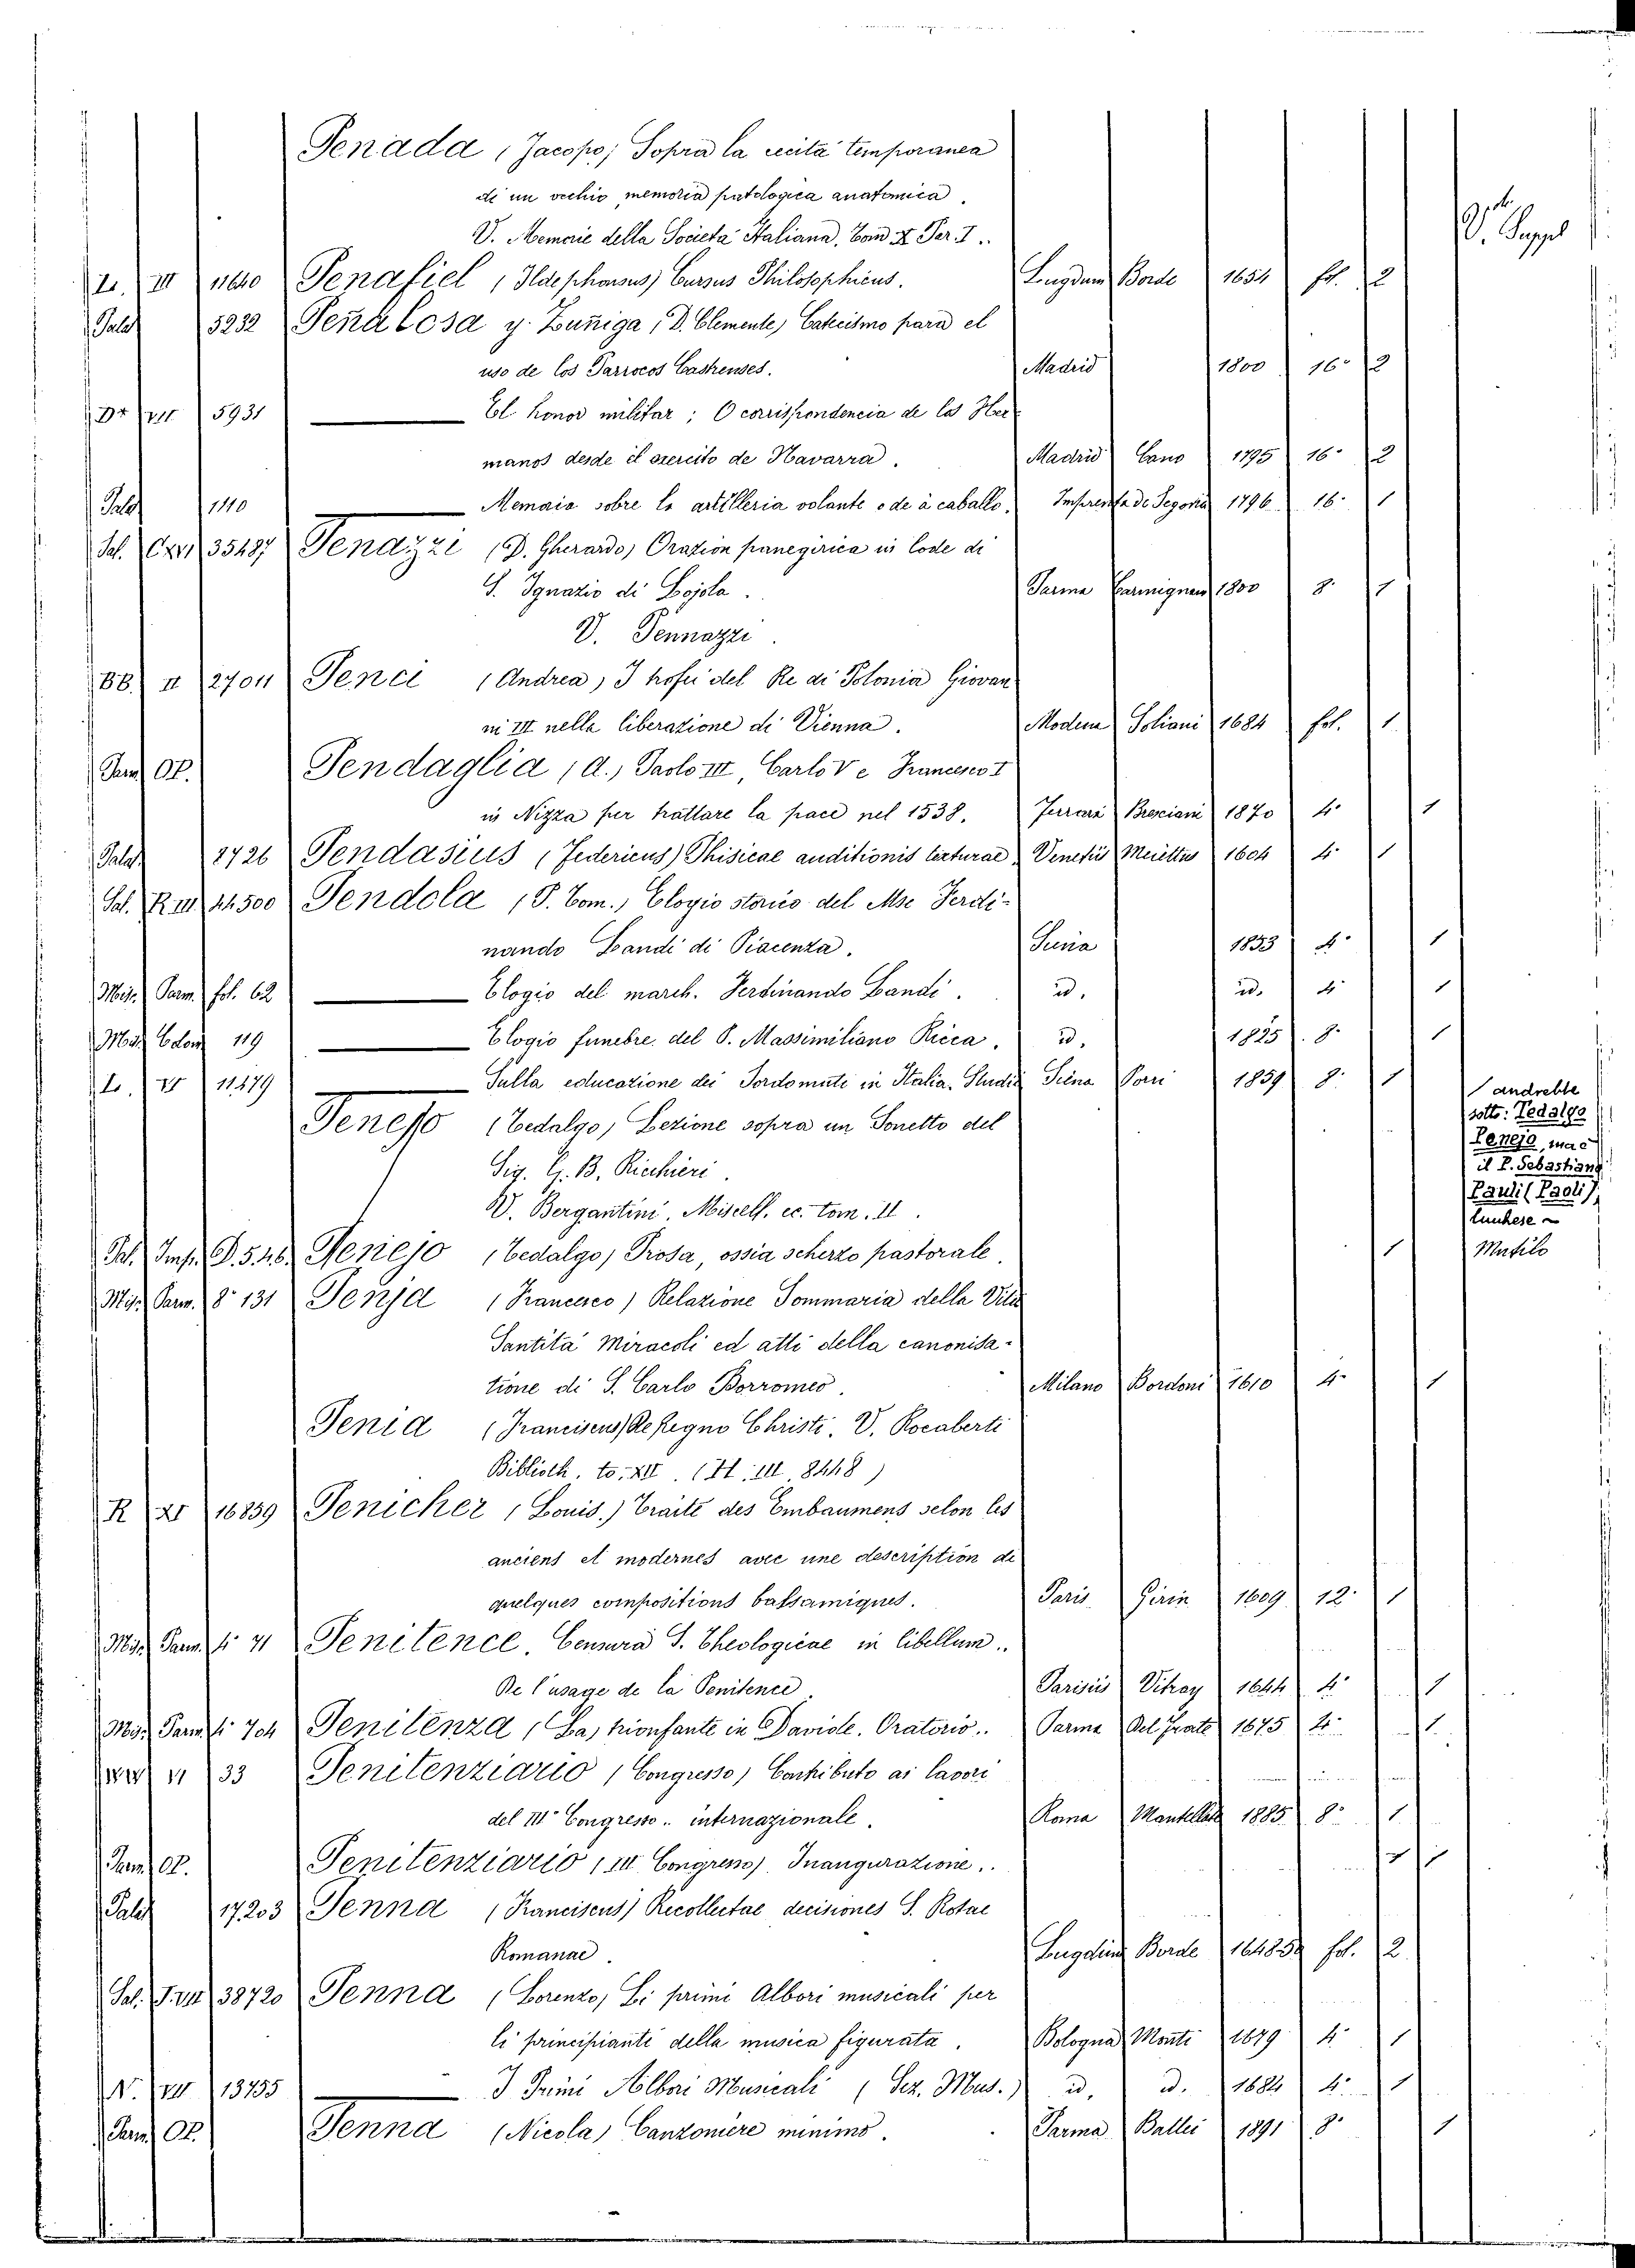 Penada (Jacopo) Sopra la recita temporanea
di un vechio memoria patologica anatomica.
V. Memorie della Società Italiana, Tom X Par. I.
V. Suppl
L. III 11640 Penafiel (Ildephonsus) Cursus Philosophicus. Lugduni Borde 1654 fol. 2
Palat 5232 Peñalosa y Zuñiga (D. Clemente) Catecismo para el
uso de los Parrocos Castrenses. Madrid 1800 16° 2
5931 ——— El honor militar; O corrispondencia de los Her
manos desde il exercito de Navarra. Madrid Cano 1795 16° 2
Palat 1110 ——— Memoia sobre la artilleria volante o de à caballo. Imprenta de Segovia 1796 16° 1
Sal. 35487 Penazzi (D. Gherardo) Oration panegirica in lode di
S. Ignazio di Lojola. Parma Carmignani 1800 8° 1
V. Pennazzi.
BB. II 27011 Penci (Andrea) I trofei del Re di Polonia Giovan
ni III nella liberazione di Vienna. Modena Soliani 1684 fol. 1
Parm OP. Pendaglia (A.) Paolo III, Carlo V e Francesco I
in Nizza per trattare la pace nel 1538. Ferrara Bresciani 1870 4° 1
Palat 2726 Pendasius (Federicus) Phisicae auditionis texturae. Venetiis Meiettus 1604 4° 1
Sal. R. III 44500 Pendola (P. Tom.) Elogio storico del Mse Ferdi-
nando Landi di Piacenza. Siena 1833 4° 1
Mis. Parm. fol. 62 ——— Elogio del march. Ferdinando Landi. id. id. 4° 1
Mis. Colom 119 ——— Elogio funebre del P. Massimiliano Ricca. id. 1835 8° 1
L. VI 11479 ——— Sulla educazione dei Sordomuti in Italia. Studii Siena Porri 1859 8° 1
Penejo (Tedalgo) Lezione sopra un Sonetto del
Sig. G. B. Ricchieri.
V. Bergantini. Miscell. ec. tom. II.
andrebbe
sotto: Tedalgo
Penejo, ma è
il P. Sebastiano
Pauli (Paoli),
lucchese ~
Pal. Imp. D. 546. Penejo (Tedalgo) Prosa, ossia scherzo pastorale. 1 Mutilo
Mis. Parm. 8° 131 Penja (Francesco) Relazione Sommaria della Vita
Santità Miracoli ed atti della canonisa-
tione di S. Carlo Borromeo. Milano Bordoni 1610 4° 1
Penia (Franciscus) De Regno Christi. V. Rocaberti
Biblioth. to. XII. (H. III. 8448)
R XI 16839 Penicher (Louis.) Traité des Embaumens selon les
anciens et modernes avec une description de
quelques compositions balsamiques. Paris Girin 1609 12° 1
Mis. Parm. 4° 71 Penitence. Censura S. Theologicae in libellum..
De l'usage de la Penitence. Parisiis Vitray 1644 4° 1
Mis. Parm. 4° 704 Penitenza (La) trionfante in Davide. Oratorio.. Parma Del Frate 1675 4° 1
11 33 Penitenziario (Congresso) Contributo ai lavori
del III° Congresso.. internazionale. Roma Mantellate 1885 8° 1
Parm. OP. Penitenziario (III Congresso) Inaugurazione..
Palat 17203 Penna (Franciscus) Recollectae decisiones S. Rotae
Romanae. Lugduni Borde fol. 2
Sal. 38720 Penna (Lorenzo) Li primi Albori musicali per
li principianti della musica figurata. Bologna Monti 1679 4° 1
N. VIII 13755 ——— I Primi Albori Musicali (Sez. Mus.) id. id. 1684 4° 1
Parm. OP. Penna (Nicola) Canzoniere minimo. Parma Battei 1891 8° 1